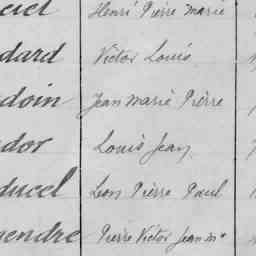 Henri Pierre Marie
dard Victor Louis
doin Jean Marie Pierre
dor Louis Jean
ducel Leon Pierre Paul
gendre Pierre Victor Jean M^e